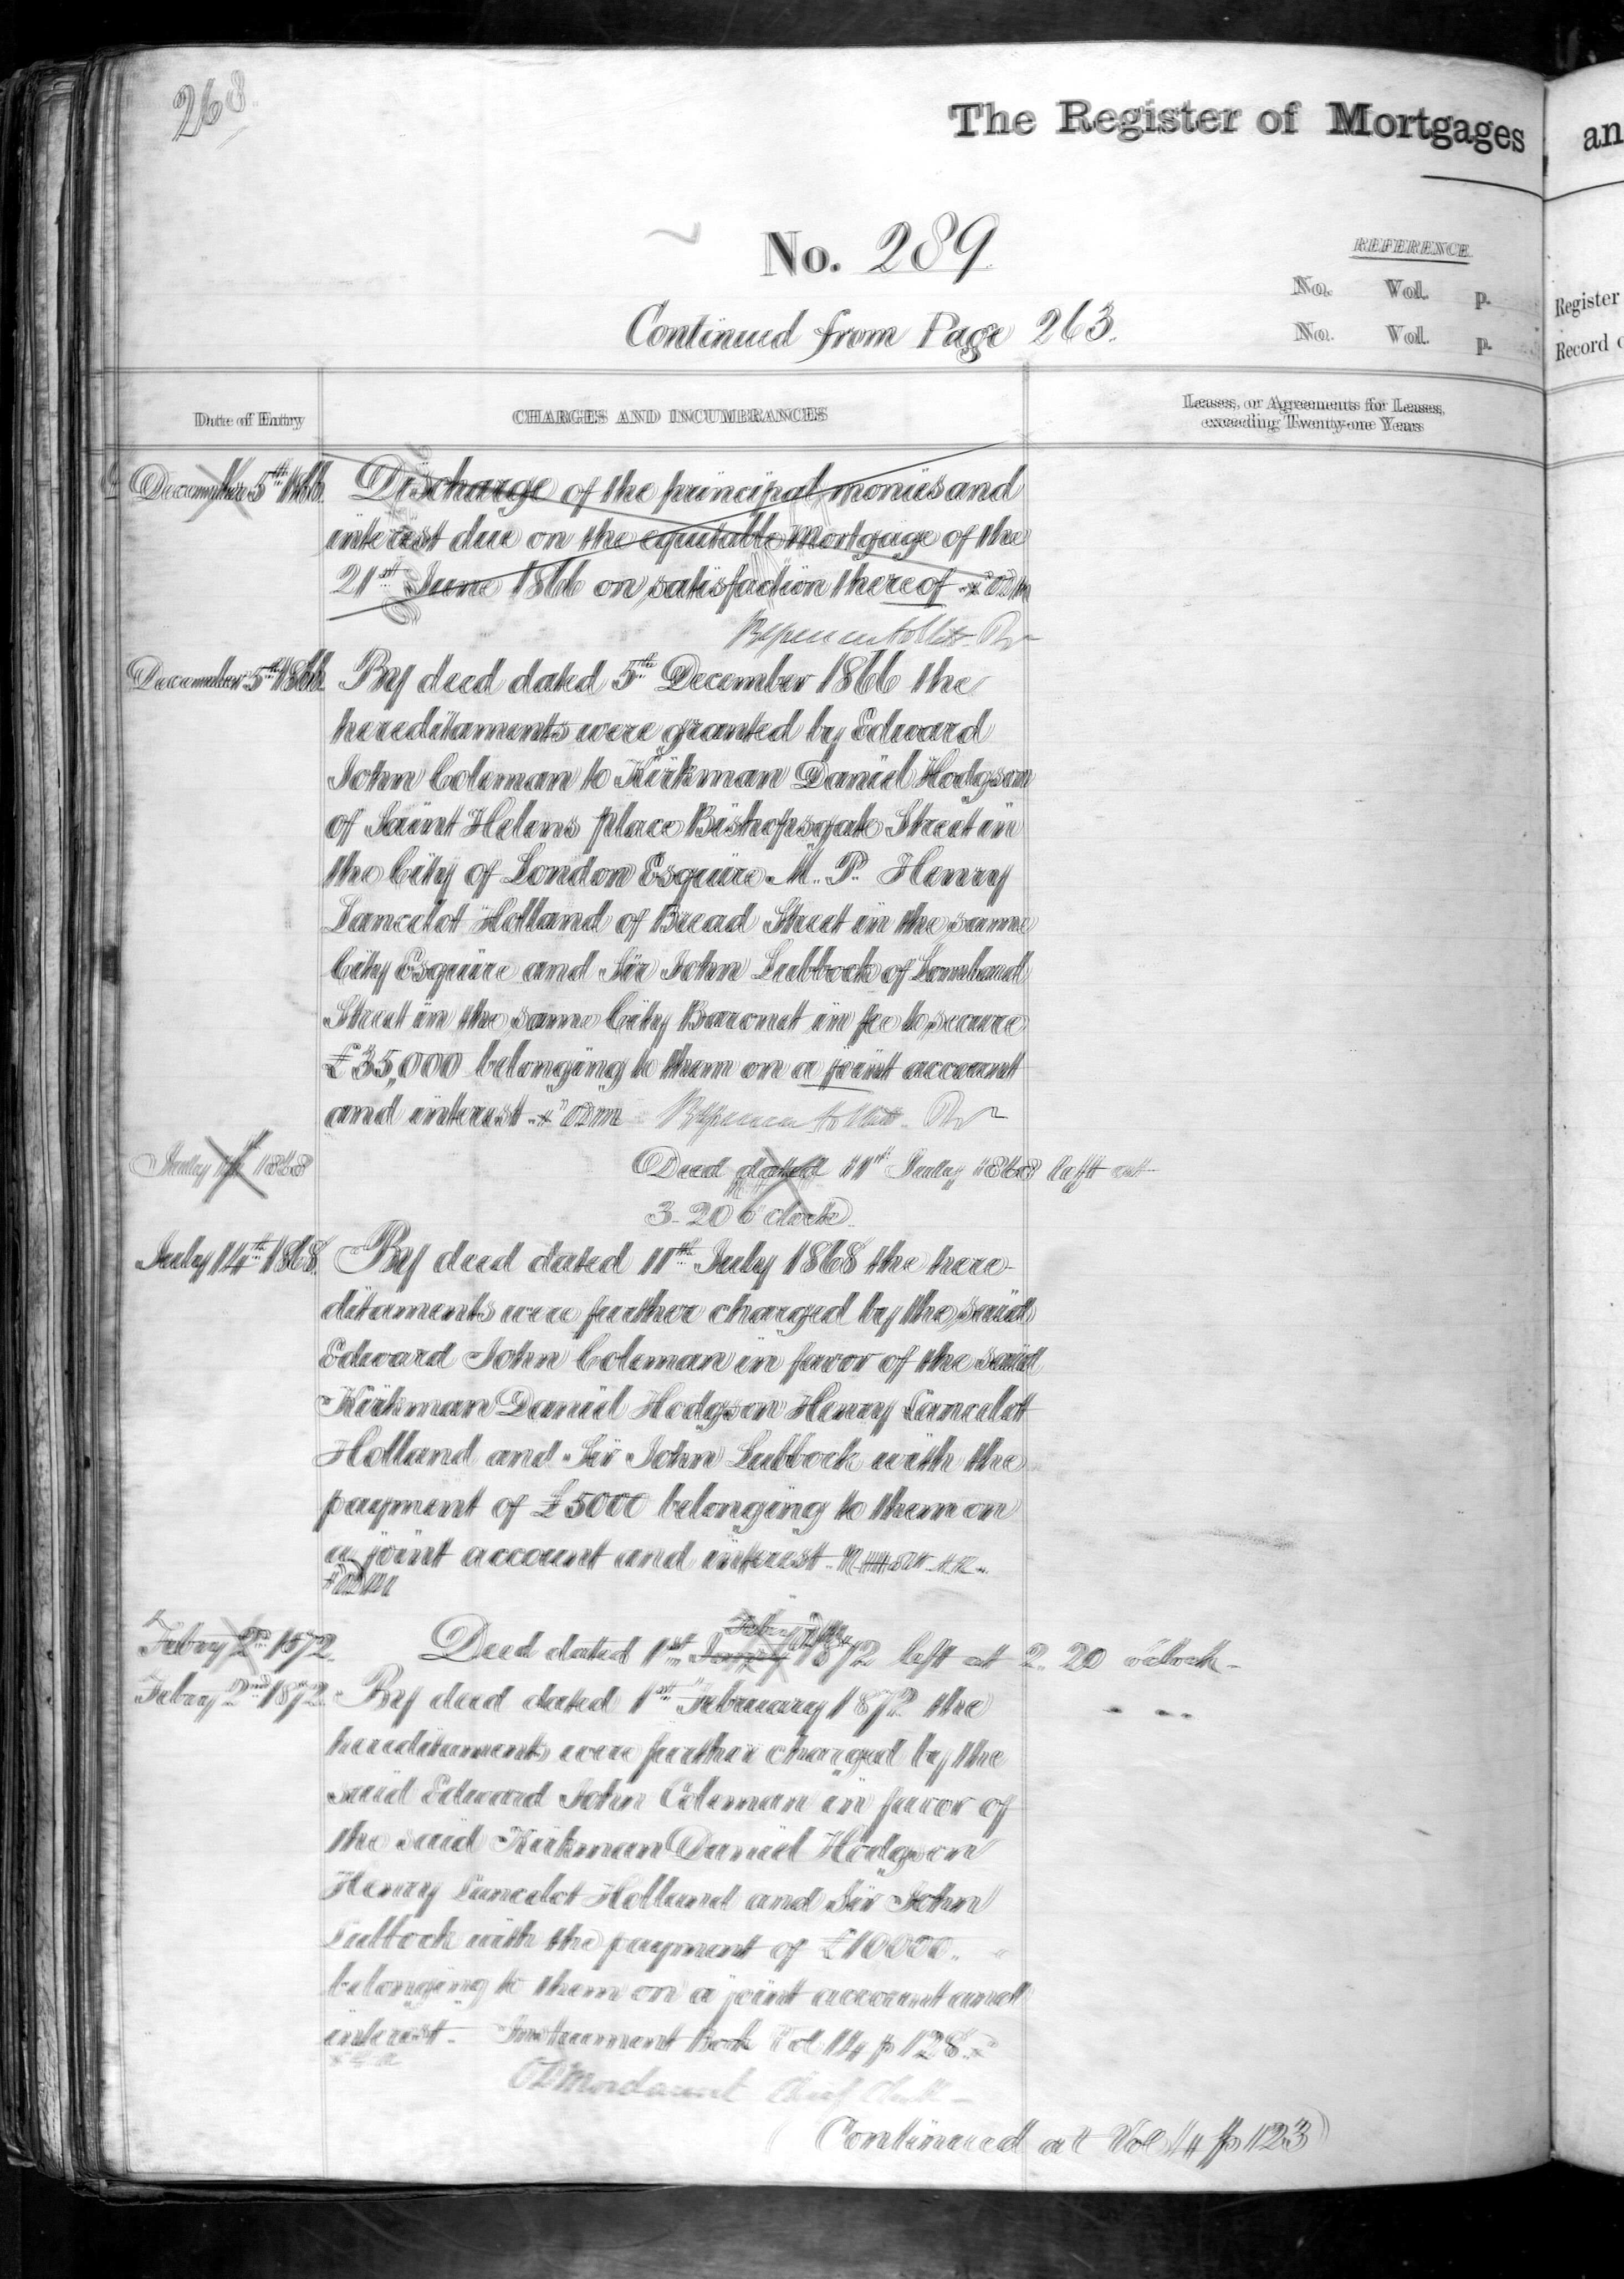 268
The Register of Mortgages
an
No. 289
REFERENCE.
No. Vol. p.
Register
Continued from Page 263.
No. Vol. p.
Record
Date of Entry
CHARGES AND INCUMBRANCES
Leases, or Agreements for Leases,
exceeding Twenty-one Years
December 5th 1866. Discharge of the principal monies and
interest due on the equitable Mortgage of the
21st June 1866 on satisfaction thereof
December 5th 1866. By deed dated 5th December 1866 the
hereditaments were granted by Edward
John Coleman to Kirkman Daniel Hodgson
of Saint Helens place Bishopsgate Street in
the City of London Esquire M. P. Henry
Lancelot Holland of Bread Street in the same
City Esquire and Sir John Lubbock of Lombard
Street in the same City Baronet in fee to secure
£35,000 belonging to them on a joint account
and interest
July 1868 Deed dated 11th July 1868 left at
3-20 o'clock
July 14th 1868. By deed dated 11th July 1868 the here-
ditaments were further charged by the said
Edward John Coleman in favor of the said
Kirkman Daniel Hodgson Henry Lancelot
Holland and Sir John Lubbock with the
payment of £5000 belonging to them on
a joint account and interest
Febry 2nd 1872. Deed dated 1st 1872 left at 2. 20 o'clock
Febry 2nd 1872. By deed dated 1st February 1872 the
hereditaments were further charged by the
said Edward John Coleman in favor of
the said Kirkman Daniel Hodgson
Henry Lancelot Holland and Sir John
Lubbock with the payment of £10000.
belonging to them on a joint account and
interest - Instrument Book Vol 14 p 128.
ODMordaunt Chief Clerk
(Continued at Vol 14 p 123)